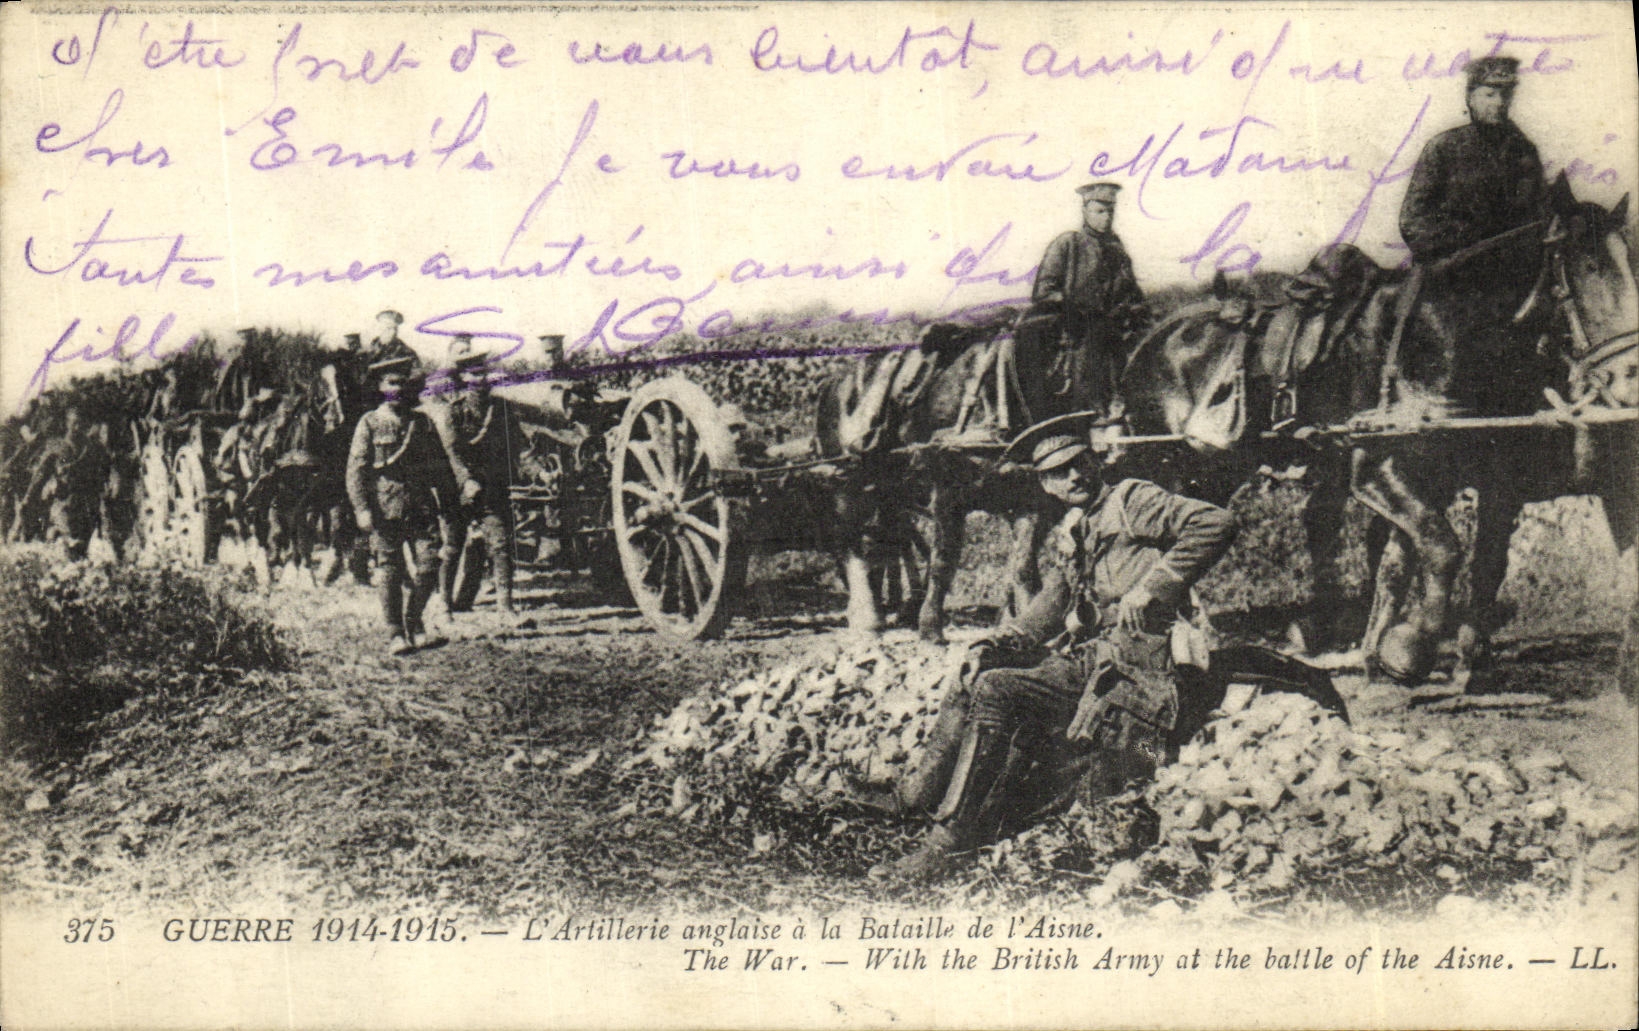 d'être prêt de vous bientôt, ainsi que votre
cher Emile Je vous envoie Madame
toutes mes amitiés, ainsi qu la
fille
375 GUERRE 1914-1915. — L'Artillerie anglaise à la Bataille de l'Aisne.
The War. — With the British Army at the battle of the Aisne. — LL.